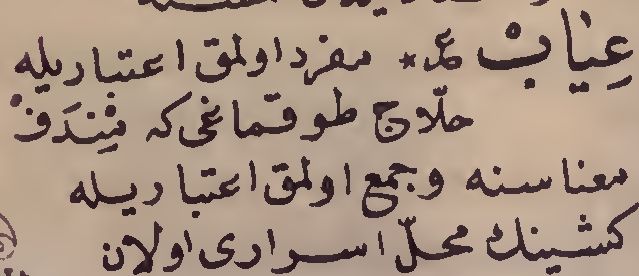 عِيَابْ ع * مفرد اولمق اعتباريله
حلّاج طوقماغى كه مِنْدَفْ
معناسنه وجمع اولمق اعتباريله
كشينك محلّ اسرارى اولان